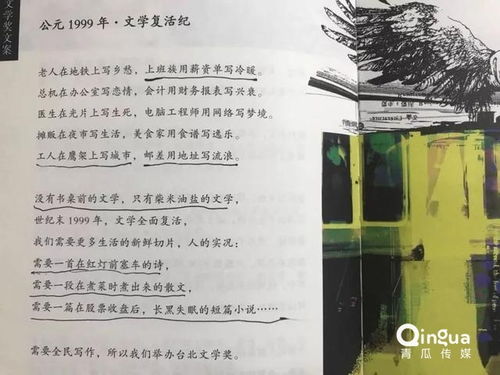 文学奖文案
公元 1999 年·文学复活纪
老人在地铁上写乡愁，上班族用薪资单写冷暖。
总机在办公室写恋情，会计用财务报表写兴衰。
医生在光片上写生死，电脑工程师用网络写梦境。
摊贩在夜市写生活，美食家用食谱写逸乐。
工人在鹰架上写城市，邮差用地址写流浪。
没有书桌前的文学，只有柴米油盐的文学，
世纪末 1999 年，文学全面复活，
我们需要更多生活的新鲜切片，人的实况：
需要一首在红灯前塞车的诗，
需要一段在煮菜时煮出来的散文，
需要一篇在股票收盘后，长黑失眠的短篇小说……
需要全民写作，所以我们举办台北文学奖。
Qingua
青瓜传媒